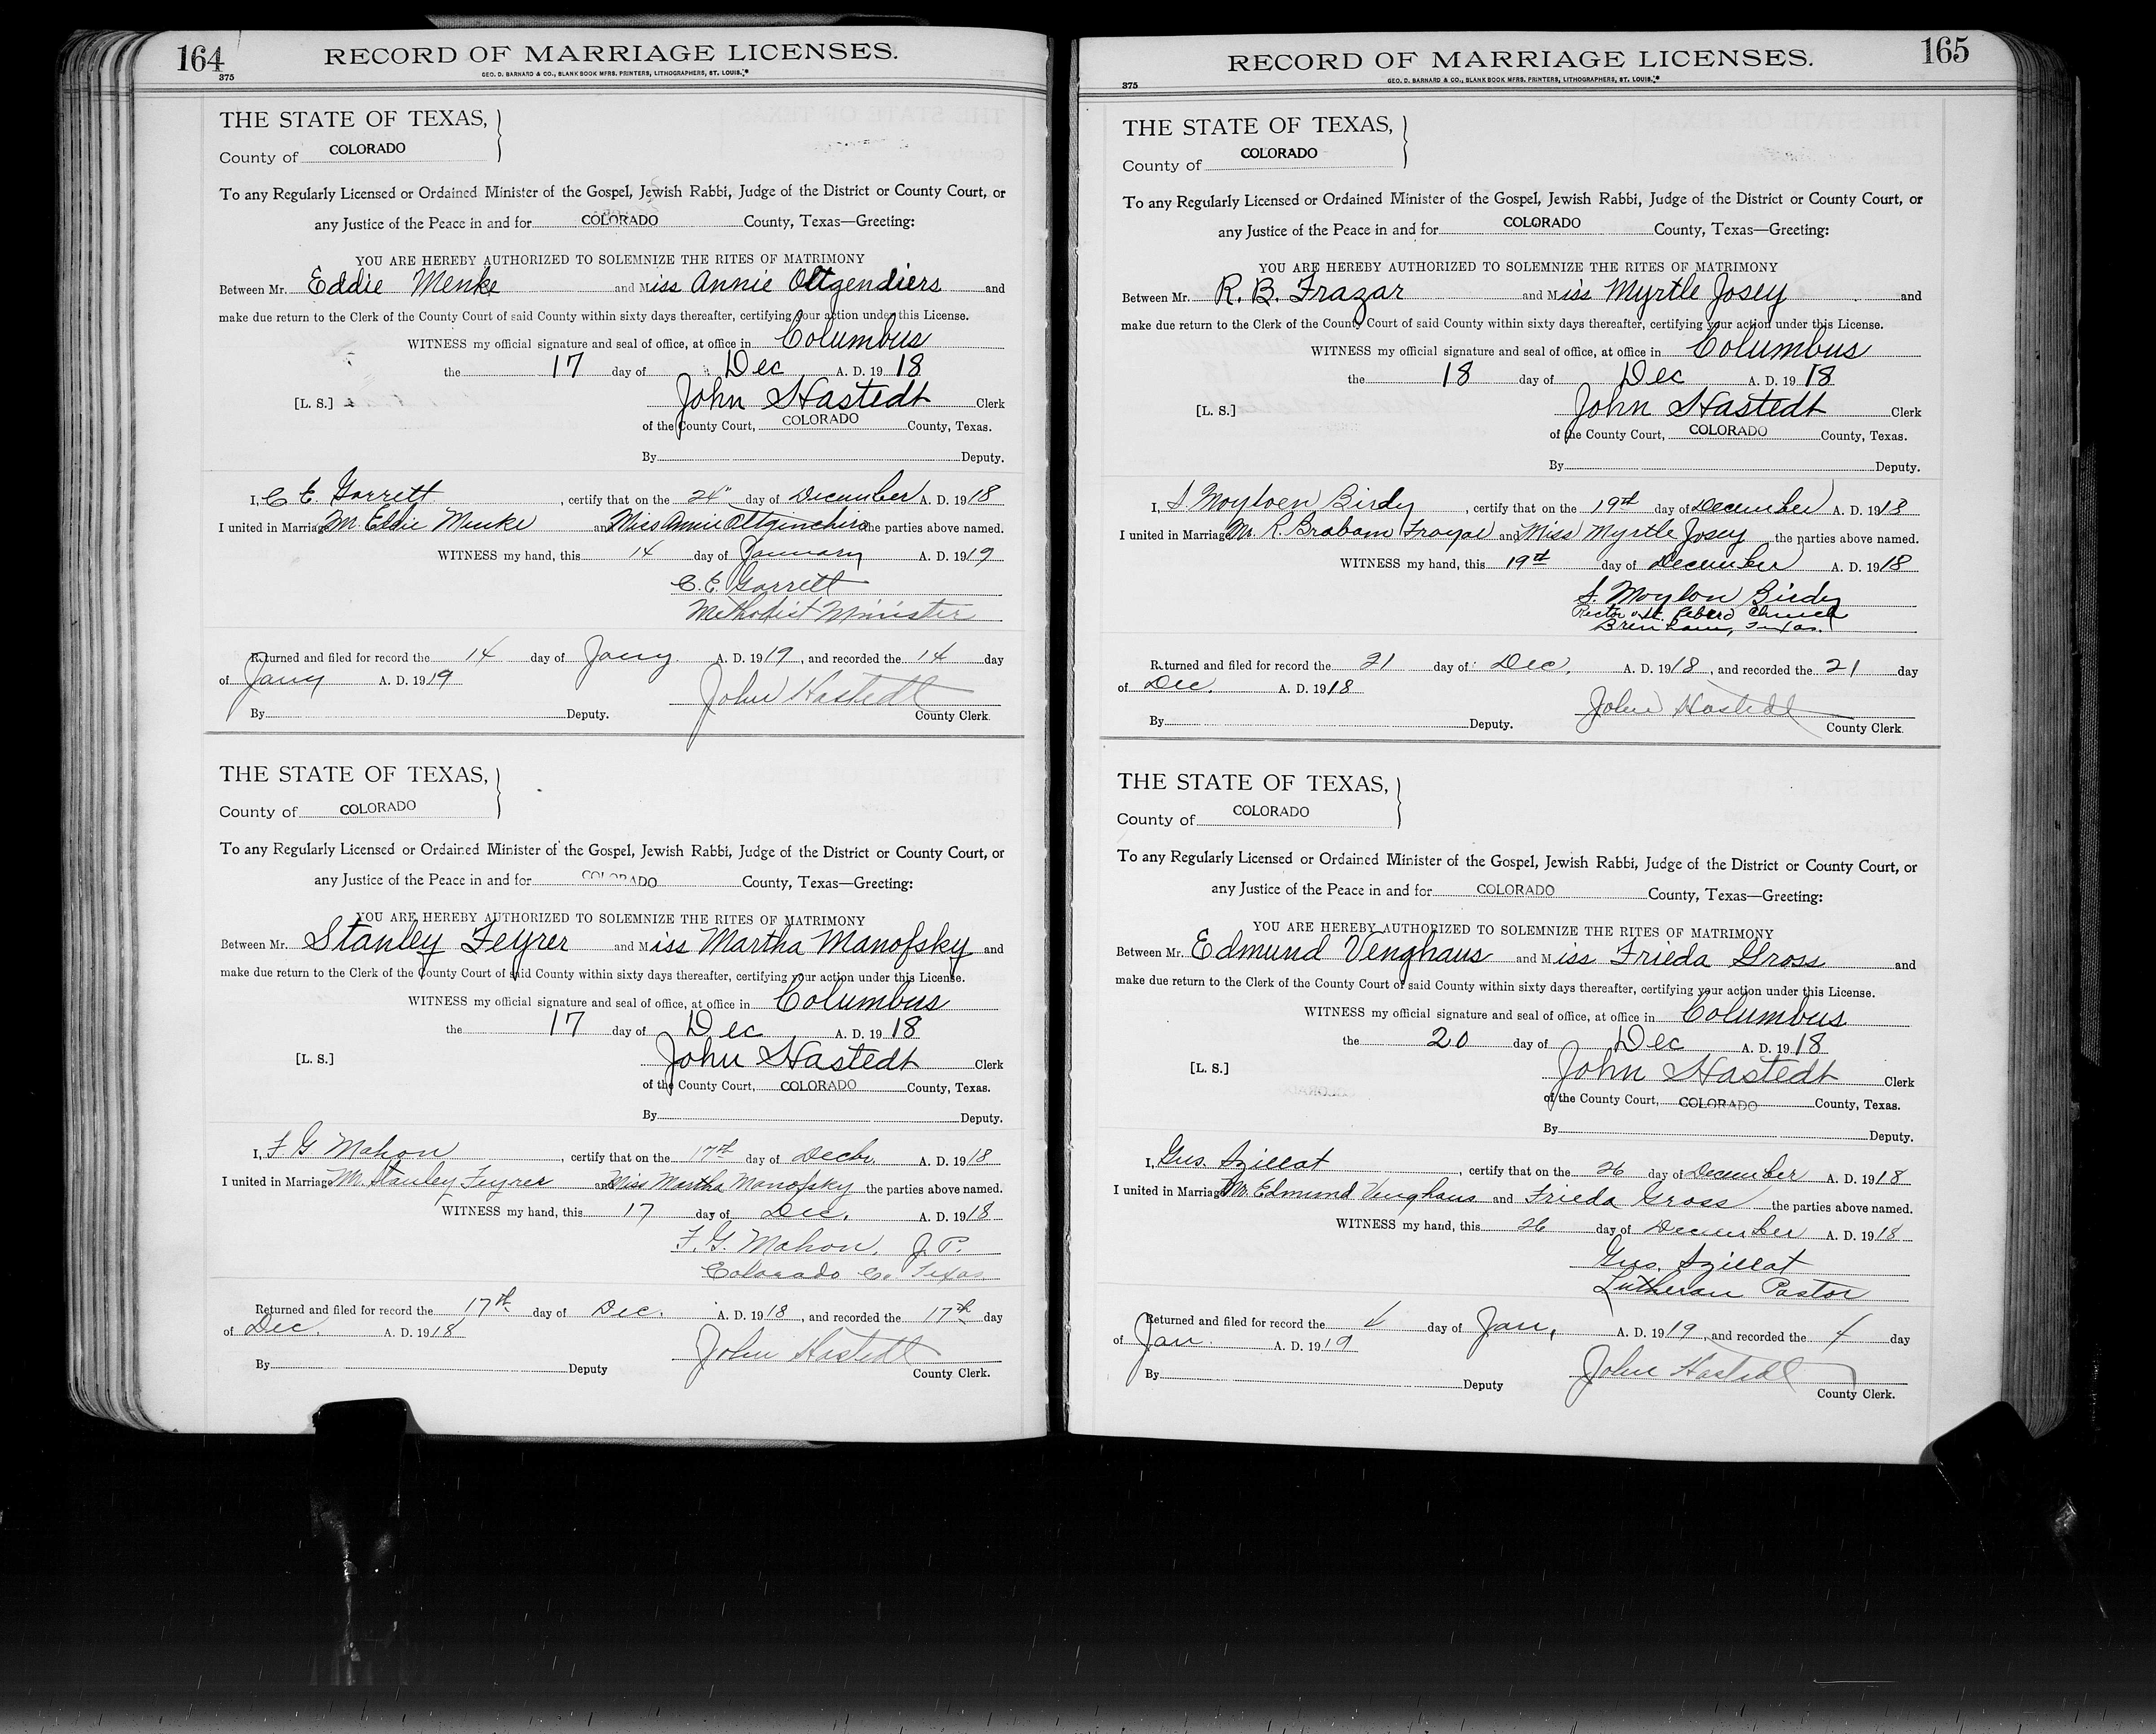 164
375
RECORD OF MARRIAGE LICENSES.
GEO. D. BARNARD & CO., BLANK BOOK MFRS. PRINTERS, LITHOGRAPHERS, ST. LOUIS.
THE STATE OF TEXAS,
County of COLORADO
To any Regularly Licensed or Ordained Minister of the Gospel, Jewish Rabbi, Judge of the District or County Court, or
any Justice of the Peace in and for COLORADO County, Texas—Greeting:
YOU ARE HEREBY AUTHORIZED TO SOLEMNIZE THE RITES OF MATRIMONY
Between Mr. Eddie Menke and Miss Annie Oltgendiers and
make due return to the Clerk of the County Court of said County within sixty days thereafter, certifying your action under this License.
WITNESS my official signature and seal of office, at office in Columbus
the 17 day of Dec A. D. 19 18
[L. S.] John Hastedt Clerk
of the County Court, COLORADO County, Texas.
By Deputy.
I, C E. Garrett, certify that on the 24" day of December A. D. 1918
I united in Marriage Mr Eddie Menke and Miss Annie the parties above named.
WITNESS my hand, this 14 day of January A. D. 1919
C. E. Garrett
Methodist Minister
Returned and filed for record the 14 day of Jany. A. D. 1919, and recorded the 14 day
of Jany A. D. 1919 John Hastedt
By Deputy. County Clerk.
THE STATE OF TEXAS,
County of COLORADO
To any Regularly Licensed or Ordained Minister of the Gospel, Jewish Rabbi, Judge of the District or County Court, or
any Justice of the Peace in and for COLORADO County, Texas—Greeting:
YOU ARE HEREBY AUTHORIZED TO SOLEMNIZE THE RITES OF MATRIMONY
Between Mr. Stanley Feyrer and Miss Martha Manofsky and
make due return to the Clerk of the County Court of said County within sixty days thereafter, certifying your action under this License.
WITNESS my official signature and seal of office, at office in Columbus
the 17 day of Dec A. D. 19 18
[L. S.] John Hastedt Clerk
of the County Court, COLORADO County, Texas.
By Deputy.
I, F. G Mahon, certify that on the 17th day of Decbr. A. D. 1918
I united in Marriage Mr. Stanley Feyrer and Miss Martha Manofsky the parties above named.
WITNESS my hand, this 17 day of Dec. A. D. 1918
F. G. Mahon, J. P.
Colorado Co. Texas
Returned and filed for record the 17th day of Dec. A. D. 1918, and recorded the 17th day
of Dec. A. D. 1918 John Hastedt
By Deputy County Clerk.
165
375
RECORD OF MARRIAGE LICENSES.
GEO. D. BARNARD & CO., BLANK BOOK MFRS. PRINTERS, LITHOGRAPHERS, ST. LOUIS.
THE STATE OF TEXAS,
County of COLORADO
To any Regularly Licensed or Ordained Minister of the Gospel, Jewish Rabbi, Judge of the District or County Court, or
any Justice of the Peace in and for COLORADO County, Texas—Greeting:
YOU ARE HEREBY AUTHORIZED TO SOLEMNIZE THE RITES OF MATRIMONY
Between Mr. R. B. Frazar and Miss Myrtle Josey and
make due return to the Clerk of the County Court of said County within sixty days thereafter, certifying your action under this License.
WITNESS my official signature and seal of office, at office in Columbus
the 18 day of Dec A. D. 19 18
[L. S.] John Hastedt Clerk
of the County Court, COLORADO County, Texas.
By Deputy.
I, S. Moylon Birdy, certify that on the 19th day of December A. D. 1918
I united in Marriage Mr. R. Brabam and Miss Myrtle Josey the parties above named.
WITNESS my hand, this 19th day of December A. D. 1918
S. Moylon Birdy
Rector St. Peters Church
Brenham, Texas.
Returned and filed for record the 21 day of Dec. A. D. 1918, and recorded the 21 day
of Dec. A. D. 1918 John Hastedt
By Deputy. County Clerk.
THE STATE OF TEXAS,
County of COLORADO
To any Regularly Licensed or Ordained Minister of the Gospel, Jewish Rabbi, Judge of the District or County Court, or
any Justice of the Peace in and for COLORADO County, Texas—Greeting:
YOU ARE HEREBY AUTHORIZED TO SOLEMNIZE THE RITES OF MATRIMONY
Between Mr. Edmund Venghaus and Miss Frieda Gross and
make due return to the Clerk of the County Court of said County within sixty days thereafter, certifying your action under this License.
WITNESS my official signature and seal of office, at office in Columbus
the 20 day of Dec A. D. 19 18
[L. S.] John Hastedt Clerk
of the County Court, COLORADO County, Texas.
By Deputy.
I, Gus. Szillat, certify that on the 26 day of December A. D. 1918
I united in Marriage Mr. Edmund Venghaus and Frieda Gross the parties above named.
WITNESS my hand, this 26 day of December A. D. 1918
Gus. Szillat
Lutheran Pastor
Returned and filed for record the 4 day of Jan, A. D. 1919, and recorded the 4 day
of Jan. A. D. 1919 John Hastedt
By Deputy County Clerk.